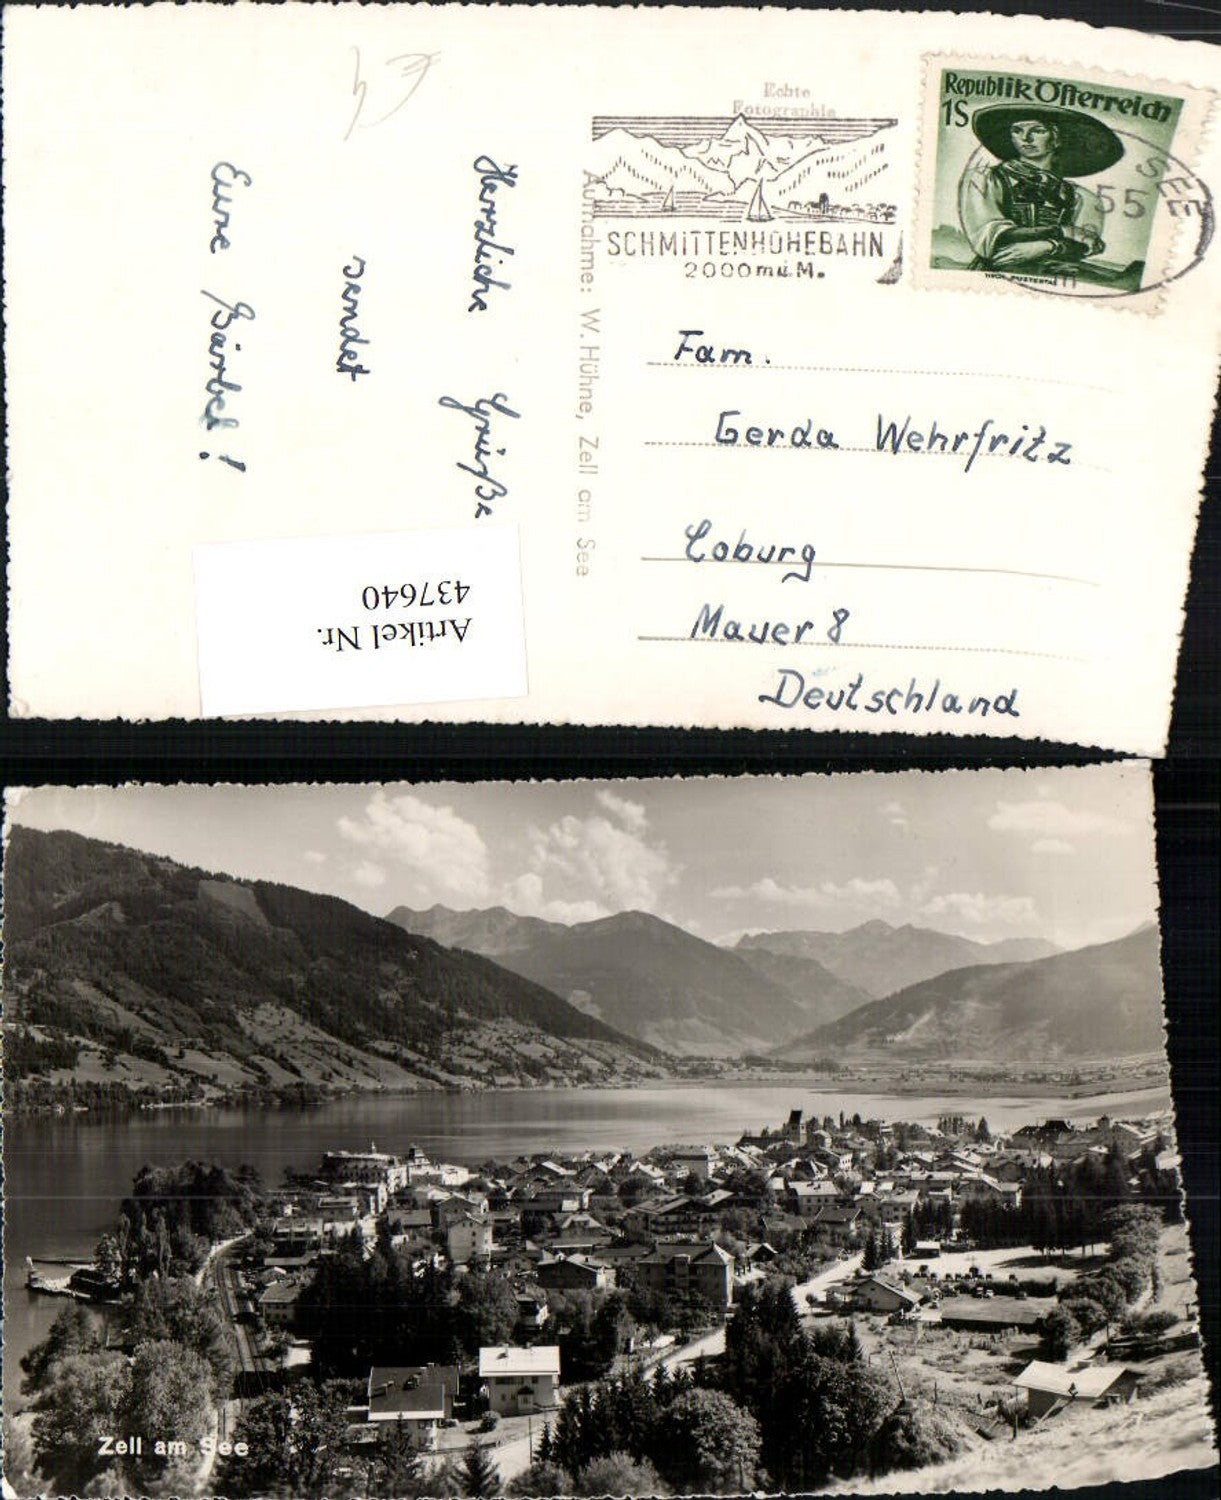 € 4
Herzliche Grüße
sendet
Eure Bärbel!
Echte
Fotographie
SCHMITTENHÖHEBAHN
2000 m ü. M.
Republik Österreich
1S
SEE
55
Aufnahme: W. Hühne, Zell am See
Fam.
Gerda Wehrfritz
Coburg
Mauer 8
Deutschland
Artikel Nr.
437640
Zell am See